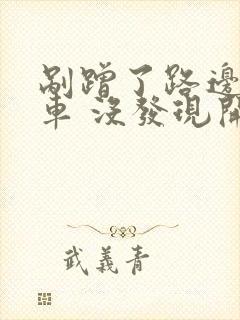 剮蹭了路邊
車 沒發現開
武義青